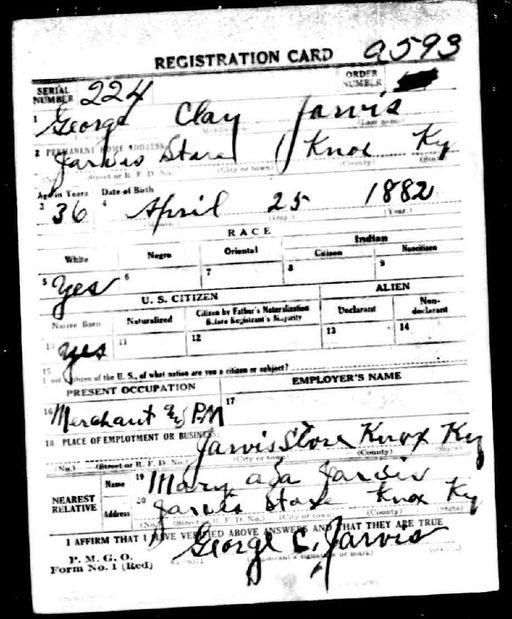 REGISTRATION CARD A593
SERIAL NUMBER 224 ORDER NUMBER
1 George Clay Jarvis
(Last name)
2 PERMANENT HOME ADDRESS:
Jarvis Store Knox Ky
(Street or R. F. D. No.) (City or town) (County) (State)
Age in Years Date of Birth
3 36 4 April 25 1882
(Month) (Day.) (Year.)
RACE
White Negro Oriental Indian
Citizen Noncitizen
5 Yes 6 7 8 9
U. S. CITIZEN ALIEN
Native Born Naturalized Citizen by Father's Naturalization Before Registrant's Majority Declarant Non-declarant
10 yes 11 12 13 14
15 If not a citizen of the U. S., of what nation are you a citizen or subject?
PRESENT OCCUPATION EMPLOYER'S NAME
16 Merchant & PM 17
18 PLACE OF EMPLOYMENT OR BUSINESS:
Jarvis Store Knox Ky
(No.) (Street or R. F. D. No.) (City or town) (County) (State)
NEAREST RELATIVE Name 19 Mary Ada Jarvis
Address 20 Jarvis Store Knox Ky
(No.) (Street or R. F. D. No.) (City or town) (County) (State)
I AFFIRM THAT I HAVE VERIFIED ABOVE ANSWERS AND THAT THEY ARE TRUE
P. M. G. O.
Form No. 1 (Red) George C. Jarvis
(Registrant's signature or mark)